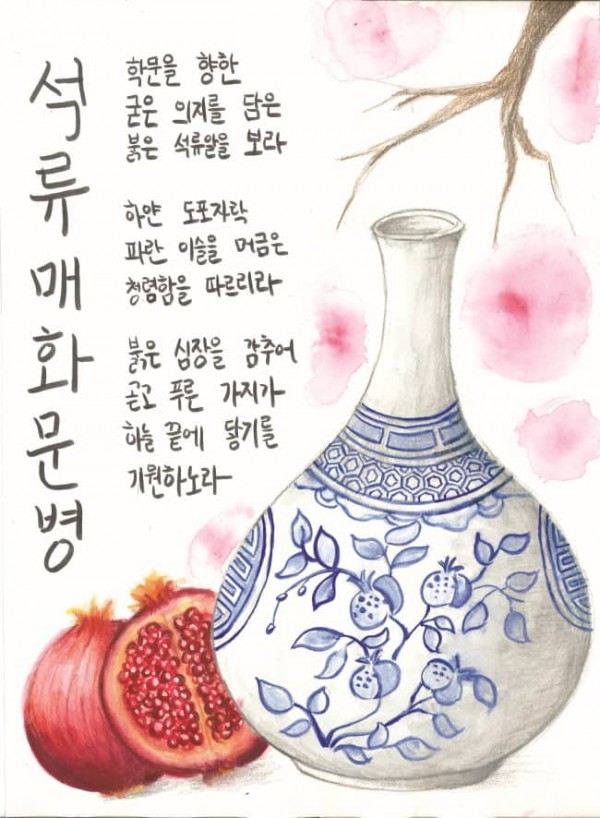 석류매화문병
학문을 향한
굳은 의지를 담은
붉은 석류알을 보라
하얀 도포자락
파란 이슬을 머금은
청렴함을 따르리라
붉은 심장을 감추어
곧고 푸른 가지가
하늘 끝에 닿기를
기원하노라